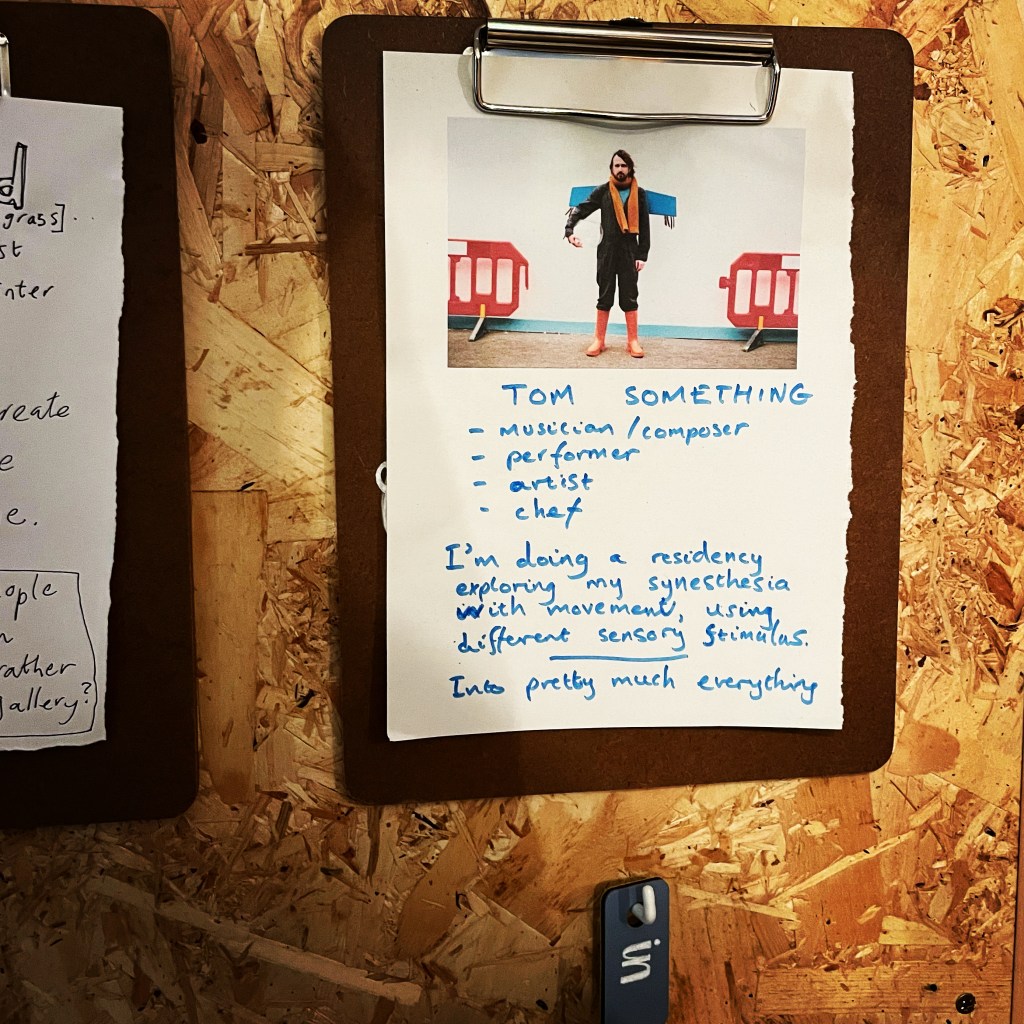 d
grass]..
st
inter
reate
e
e.
ople
n
rather
gallery?
TOM SOMETHING
- musician/composer
- performer
- artist
- chef
I'm doing a residency
exploring my synesthesia
with movement, using
different sensory stimulus.
Into pretty much everything
in